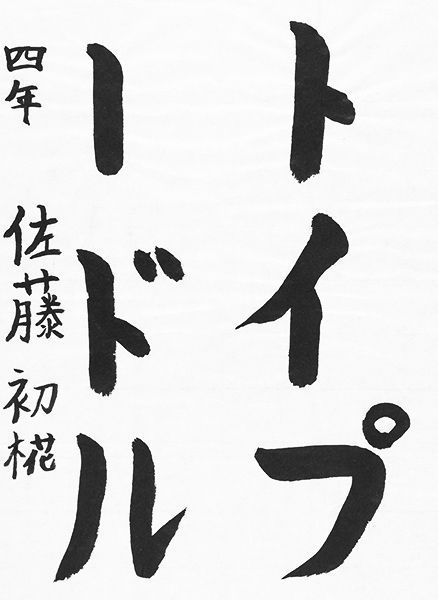 トイプ
ードル
四年 佐藤初椛